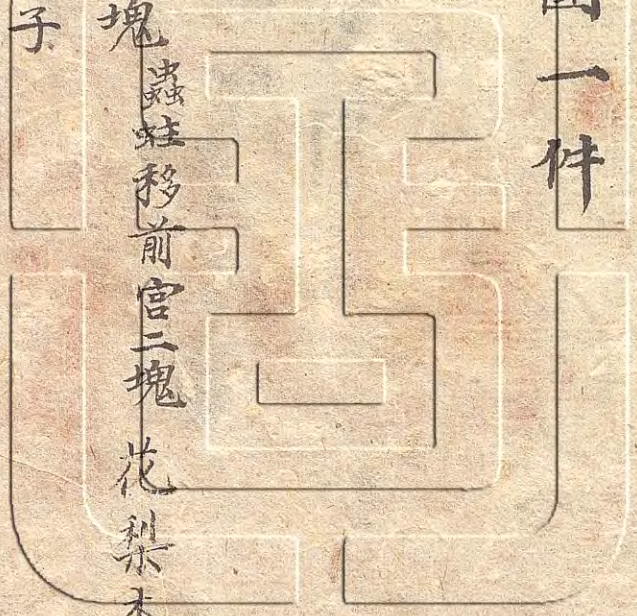 一件
塊蟲蛀移前宮二塊 花梨木
子